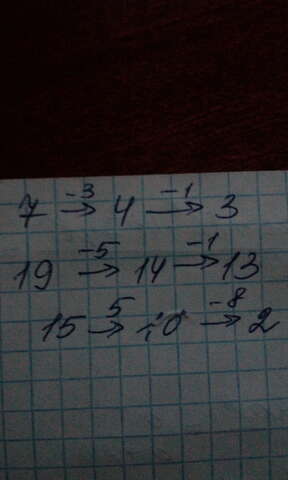 7 -3→ 4 -1→ 3
19 -5→ 14 -1→ 13
15 5→ 10 -8→ 2